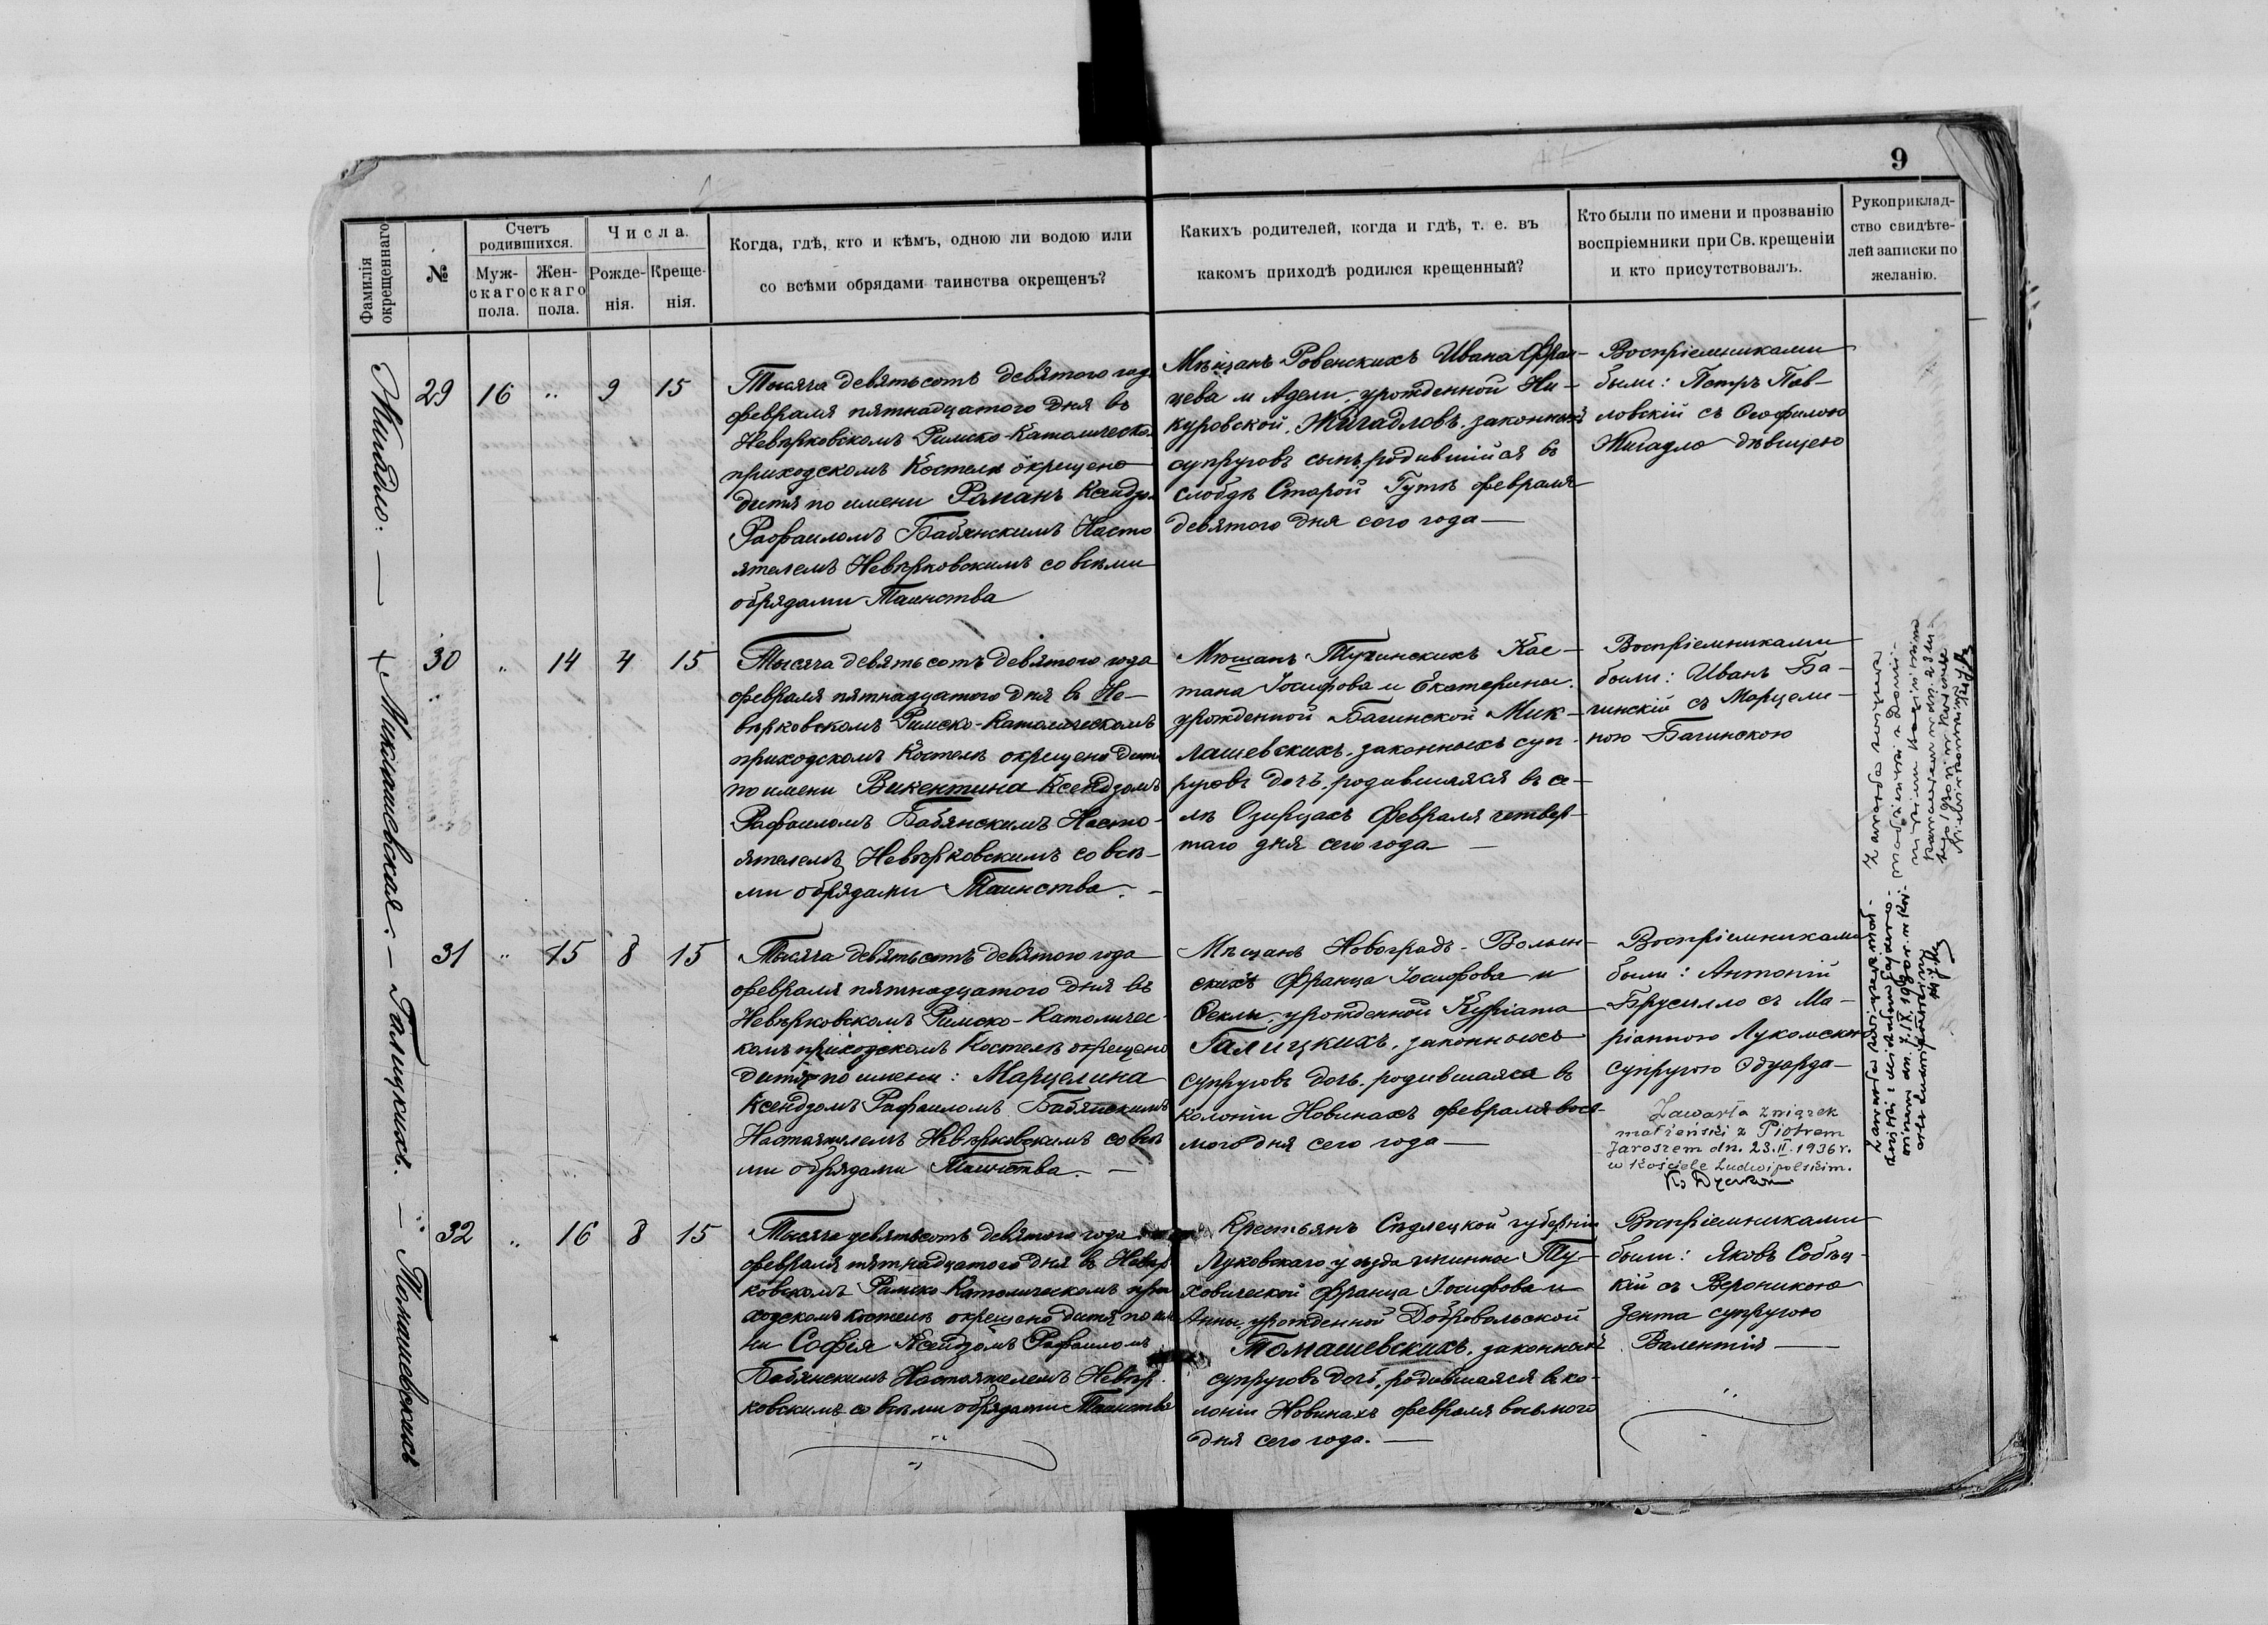 9
Фамилія окрещеннаго
№
Счетъ родившихся.
Муж-
скаго
пола.
Жен-
скаго
пола.
Числа.
Рожде-
нія.
Креще-
нія.
Когда, гдѣ, кто и кѣмъ, одною ли водою или
со всѣми обрядами таинства окрещенъ?
Какихъ родителей, когда и гдѣ, т. е. въ
какомъ приходѣ родился крещенный?
Кто были по имени и прозванію
воспріемники при Св. крещеніи
и кто присутствовалъ.
Рукоприклад-
ство свидѣте-
лей записки по
желанію.
Жигадло.
29 16 „ 9 15
Тысяча девятьсотъ девятого года
февраля пятнадцатого дня въ
Невѣрковскомъ Римско-Католическомъ
приходскомъ Костелѣ окрещено
дитя по имени Романъ Ксендзомъ
Рафаиломъ Бабянскимъ Насто
ятелемъ Невѣрковскимъ со всѣми
обрядами Таинства
Мѣщанъ Ровенскихъ Ивана Фран-
цева и Адели, урожденной Ни-
куровской, Жигадловъ, законныхъ
супруговъ сынъ, родившійся въ
слободѣ Старой Гутѣ февраля
девятого дня сего года —
Воспріемниками
были: Петръ Пав-
ловскій съ Ѳеофилою
Жигадло дѣвицею
+ Миклашевская. —
30 „ 14 4 15
Тысяча девятьсотъ девятого года
февраля пятнадцатого дня въ Не-
вѣрковскомъ Римско-Католическомъ
приходскомъ Костелѣ окрещено дитя
по имени Викентина Ксендзомъ
Рафаиломъ Бабянскимъ Насто-
ятелемъ Невѣрковскимъ со всѣ-
ми обрядами Таинства. —
Мѣщанъ Тучинскихъ Кае-
тана Іосифова и Екатерины,
урожденной Багинской Мик-
лашевскихъ, законныхъ суп-
руговъ дочь, родившаяся въ се-
лѣ Озирцахъ февраля четвер-
таго дня сего года —
Воспріемниками
были: Иванъ Ба-
гинскій съ Марцели-
ною Багинскою
Голицкихъ. —
31 „ 15 8 15
Тысяча девятьсотъ девятого года
февраля пятнадцатого дня въ
Невѣрковскомъ Римско-Католичес-
комъ приходскомъ Костелѣ окрещено
дитя по имени: Марцелина
Ксендзомъ Рафаиломъ Бабянскимъ
Настоятелемъ Невѣрковскимъ со всѣ
ми обрядами Таинства. —
Мѣщанъ Новоградъ-Волын-
скихъ Франца Іосифова и
Ѳеклы, урожденной Куріата
Галицкихъ, законныхъ
супруговъ дочь, родившаяся въ
колоніи Новинахъ февраля вось-
мого дня сего года —
Воспріемниками
были: Антоній
Брусилло съ Ма-
ріанною Лукомскою
супругою Эдуарда —
Zawarła związek
małżeński z Piotrem
Jaroszem dn. 23.II.1936 r.
w kościele Ludwipolskim.
Томашевскихъ
32 „ 16 8 15
Тысяча девятьсотъ девятого года
февраля пятнадцатого дня въ Невѣр
ковскомъ Римско-Католическомъ при
ходскомъ костелѣ окрещено дитя по име
ни Софія Ксендзомъ Рафаиломъ
Бабянскимъ Настоятелемъ Невѣр-
ковскимъ со всѣми обрядами Таинства
Крестьянъ Сѣдлецкой губерніи
Луковскаго уѣзда гмины Ту-
ховической Франца Іосифова и
Анны, урожденной Добровольской
Томашевскихъ, законныхъ
супруговъ дочь, родившаяся въ ко-
лоніи Новинахъ февраля восьмого
дня сего года. —
Воспріемниками
были: Яковъ Собѣц-
кій съ Вероникою
Зента супругою
Валентія —